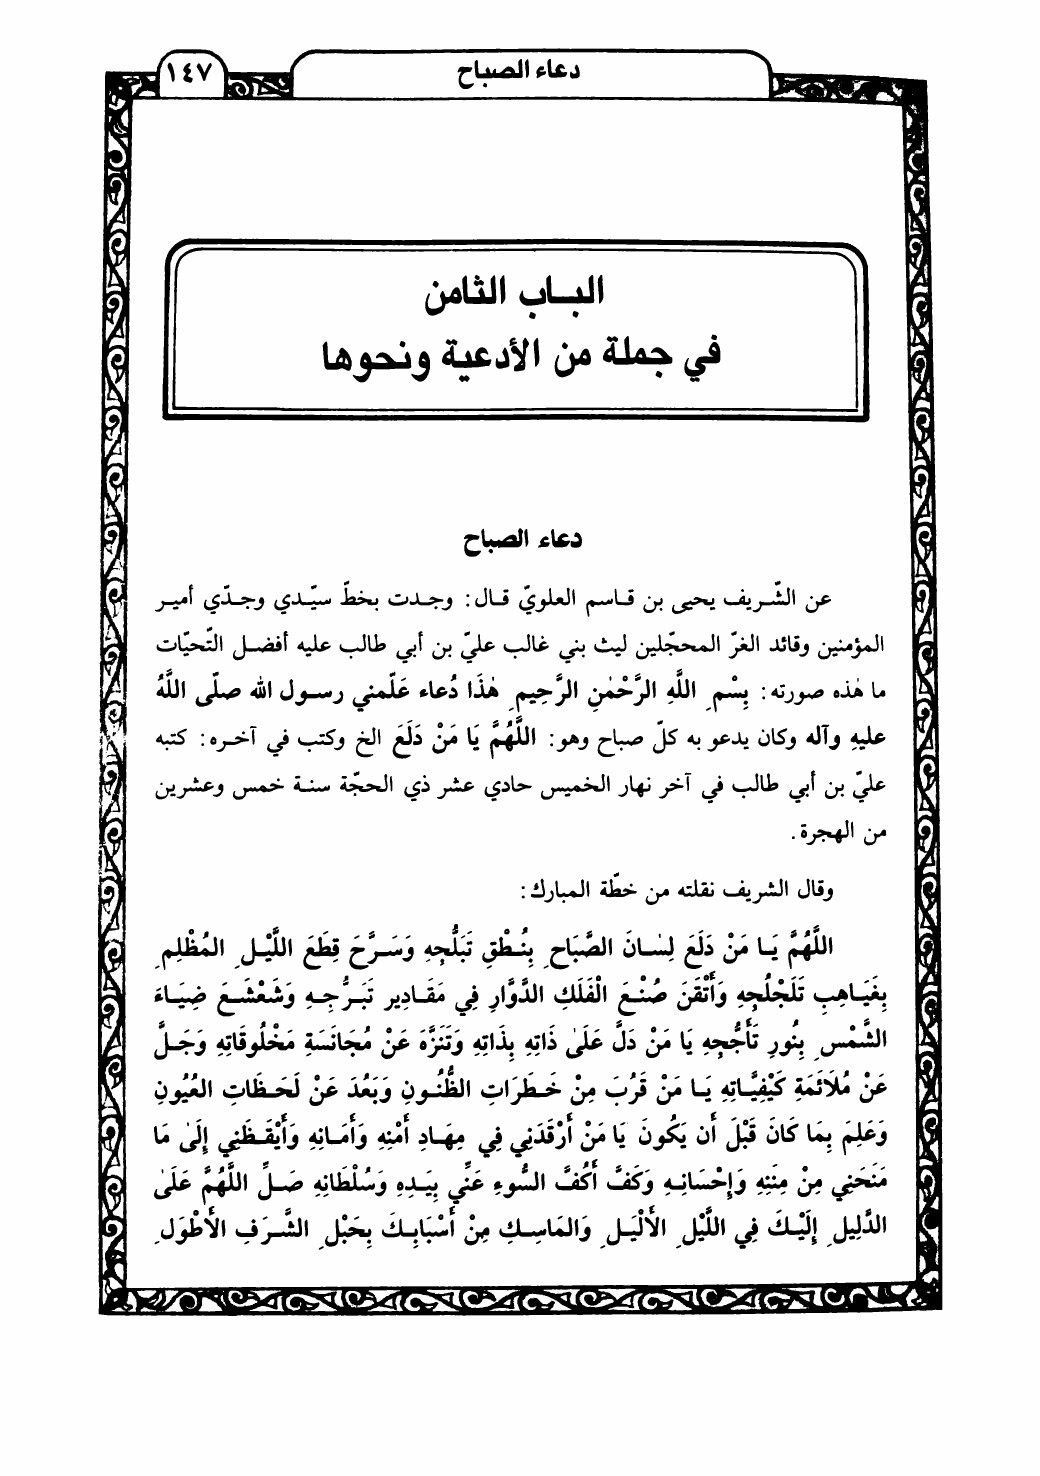 دعاء الصباح
١٤٧
الباب الثامن
في جملة من الأدعية ونحوها
دعاء الصباح
عن الشّريف يحيى بن قاسم العلويّ قال: وجدت بخطّ سيّدي وجدّي أمير
المؤمنين وقائد الغرّ المحجّلين ليث بني غالب عليّ بن أبي طالب عليه أفضل التّحيّات
ما هٰذه صورته: بِسْمِ اللَّهِ الرَّحْمٰنِ الرَّحِيمِ هٰذَا دُعاء عَلّمني رسول الله صلّى اللَّهُ
عليهِ وآله وكان يدعو به كلّ صباح وهو: اللَّهُمَّ يَا مَنْ دَلَعَ الخ وكتب في آخره: كتبه
عليّ بن أبي طالب في آخر نهار الخميس حادي عشر ذي الحجّة سنة خمس وعشرين
من الهجرة.
وقال الشريف نقلته من خطّة المبارك:
اللَّهُمَّ يَا مَنْ دَلَعَ لِسٰانَ الصَّبَاحِ بِنُطْقِ تَبَلُّجِهِ وَسَرَّحَ قِطَعَ اللَّيْلِ المُظْلِمِ
بِغَيَاهِبِ تَلَجْلُجِهِ وَأَتْقَنَ صُنْعَ الْفَلَكِ الدَّوَّارِ فِي مَقَادِيرِ تَبَرُّجِهِ وَشَعْشعَ ضِيَاءَ
الشَّمْسِ بِنُورِ تَأَجُّجِهِ يَا مَنْ دَلَّ عَلَىٰ ذَاتِهِ بِذَاتِهِ وَتَنَزَّهَ عَنْ مُجَانَسَةِ مَخْلُوقَاتِهِ وَجَلَّ
عَنْ مُلَائَمَةِ كَيْفِيَّاتِهِ يَا مَنْ قَرُبَ مِنْ خَطَرَاتِ الظُّنُونِ وَبَعُدَ عَنْ لَحَظَاتِ العُيُونِ
وَعَلِمَ بِمَا كَانَ قَبْلَ أن يَكُونَ يَا مَنْ أَرْقَدَنِي فِي مِهَادِ أَمْنِهِ وَأَمَانِهِ وَأَيْقَظَنِي إِلَىٰ مَا
مَنَحَنِي مِنْ مِنَنِهِ وَإِحْسَانِهِ وَكَفَّ أَكُفَّ السُّوءِ عَنِّي بِيَدِهِ وَسُلْطَانِهِ صَلِّ اللَّهُمَّ عَلَىٰ
الدَّلِيلِ إِلَيْكَ فِي اللَّيْلِ الأَلْيَلِ وَالمَاسِكِ مِنْ أَسْبَابِكَ بِحَبْلِ الشَّرَفِ الأَطْوَلِ